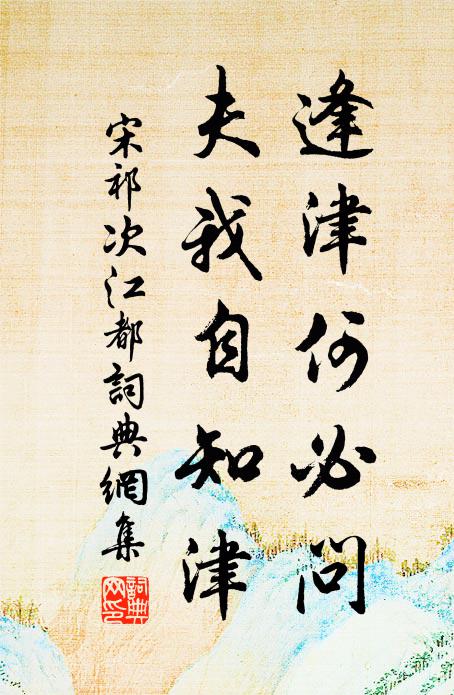 逢津何必问
夫我自知津
宋祁次江都詞典網集
詞典
网